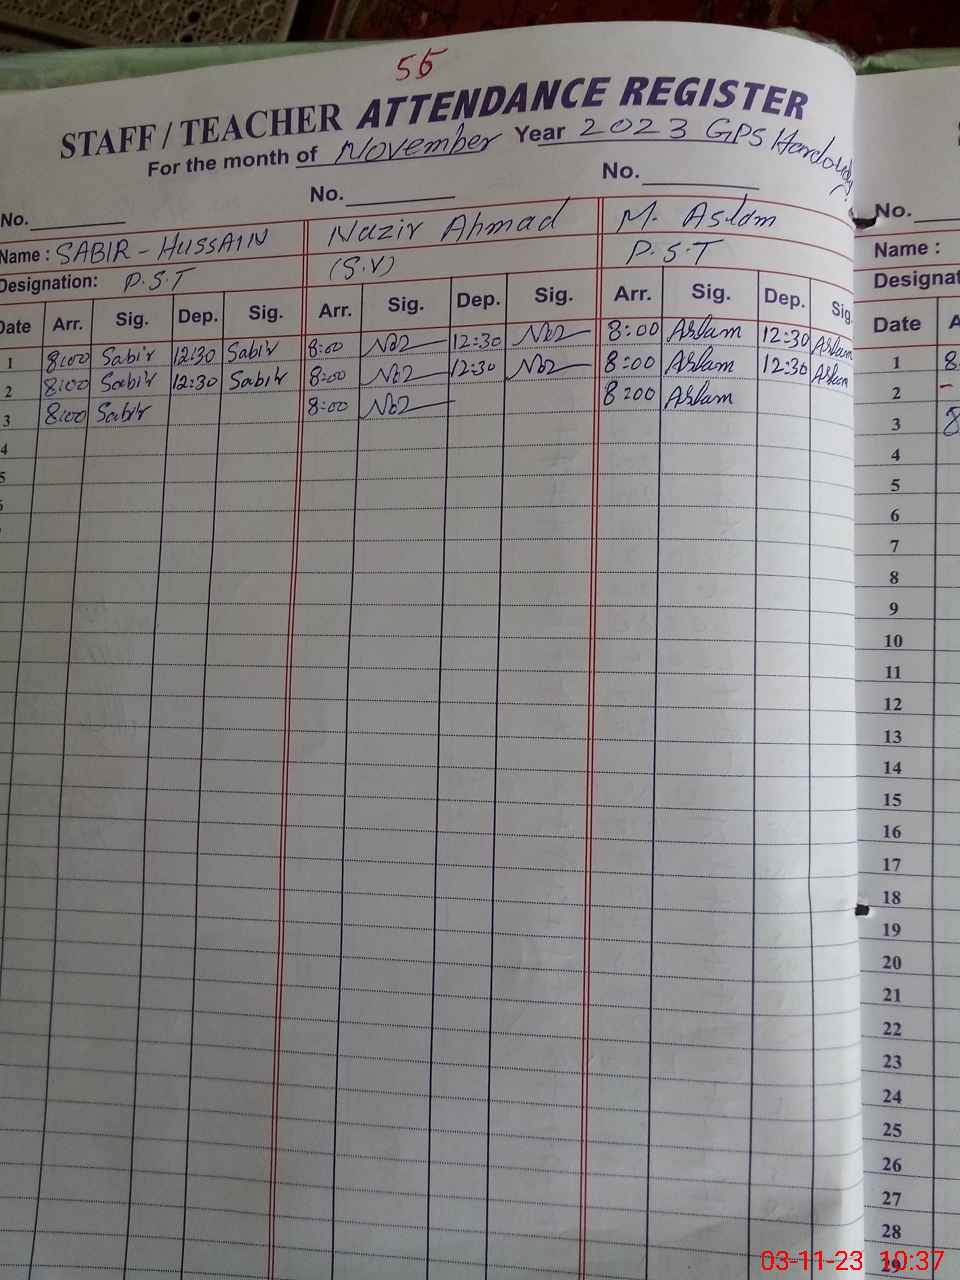 55
STAFF / TEACHER ATTENDANCE REGISTER
For the month of November Year 2023 GPS
No. No. No. No.
Name : SABIR - HUSSAIN Nazir Ahmad M. Aslam Name :
Designation: P.S.T (S.V) P.S.T Designat
Date Arr. Sig. Dep. Sig. Arr. Sig. Dep. Sig. Arr. Sig. Dep. Sig. Date A
1 8:00 Sabir 12:30 Sabir 8:00 12:30 8:00 Aslam 12:30 Aslam 1 8
2 8:00 Sabir 12:30 Sabir 8:00 12:30 8:00 Aslam 12:30 Aslam 2 -
3 8:00 Sabir 8:00 8:00 Aslam 3 8
4 4
5 5
6 6
7
8
9
10
11
12
13
14
15
16
17
18
19
20
21
22
23
24
25
26
27
28
29
03-11-23 10:37